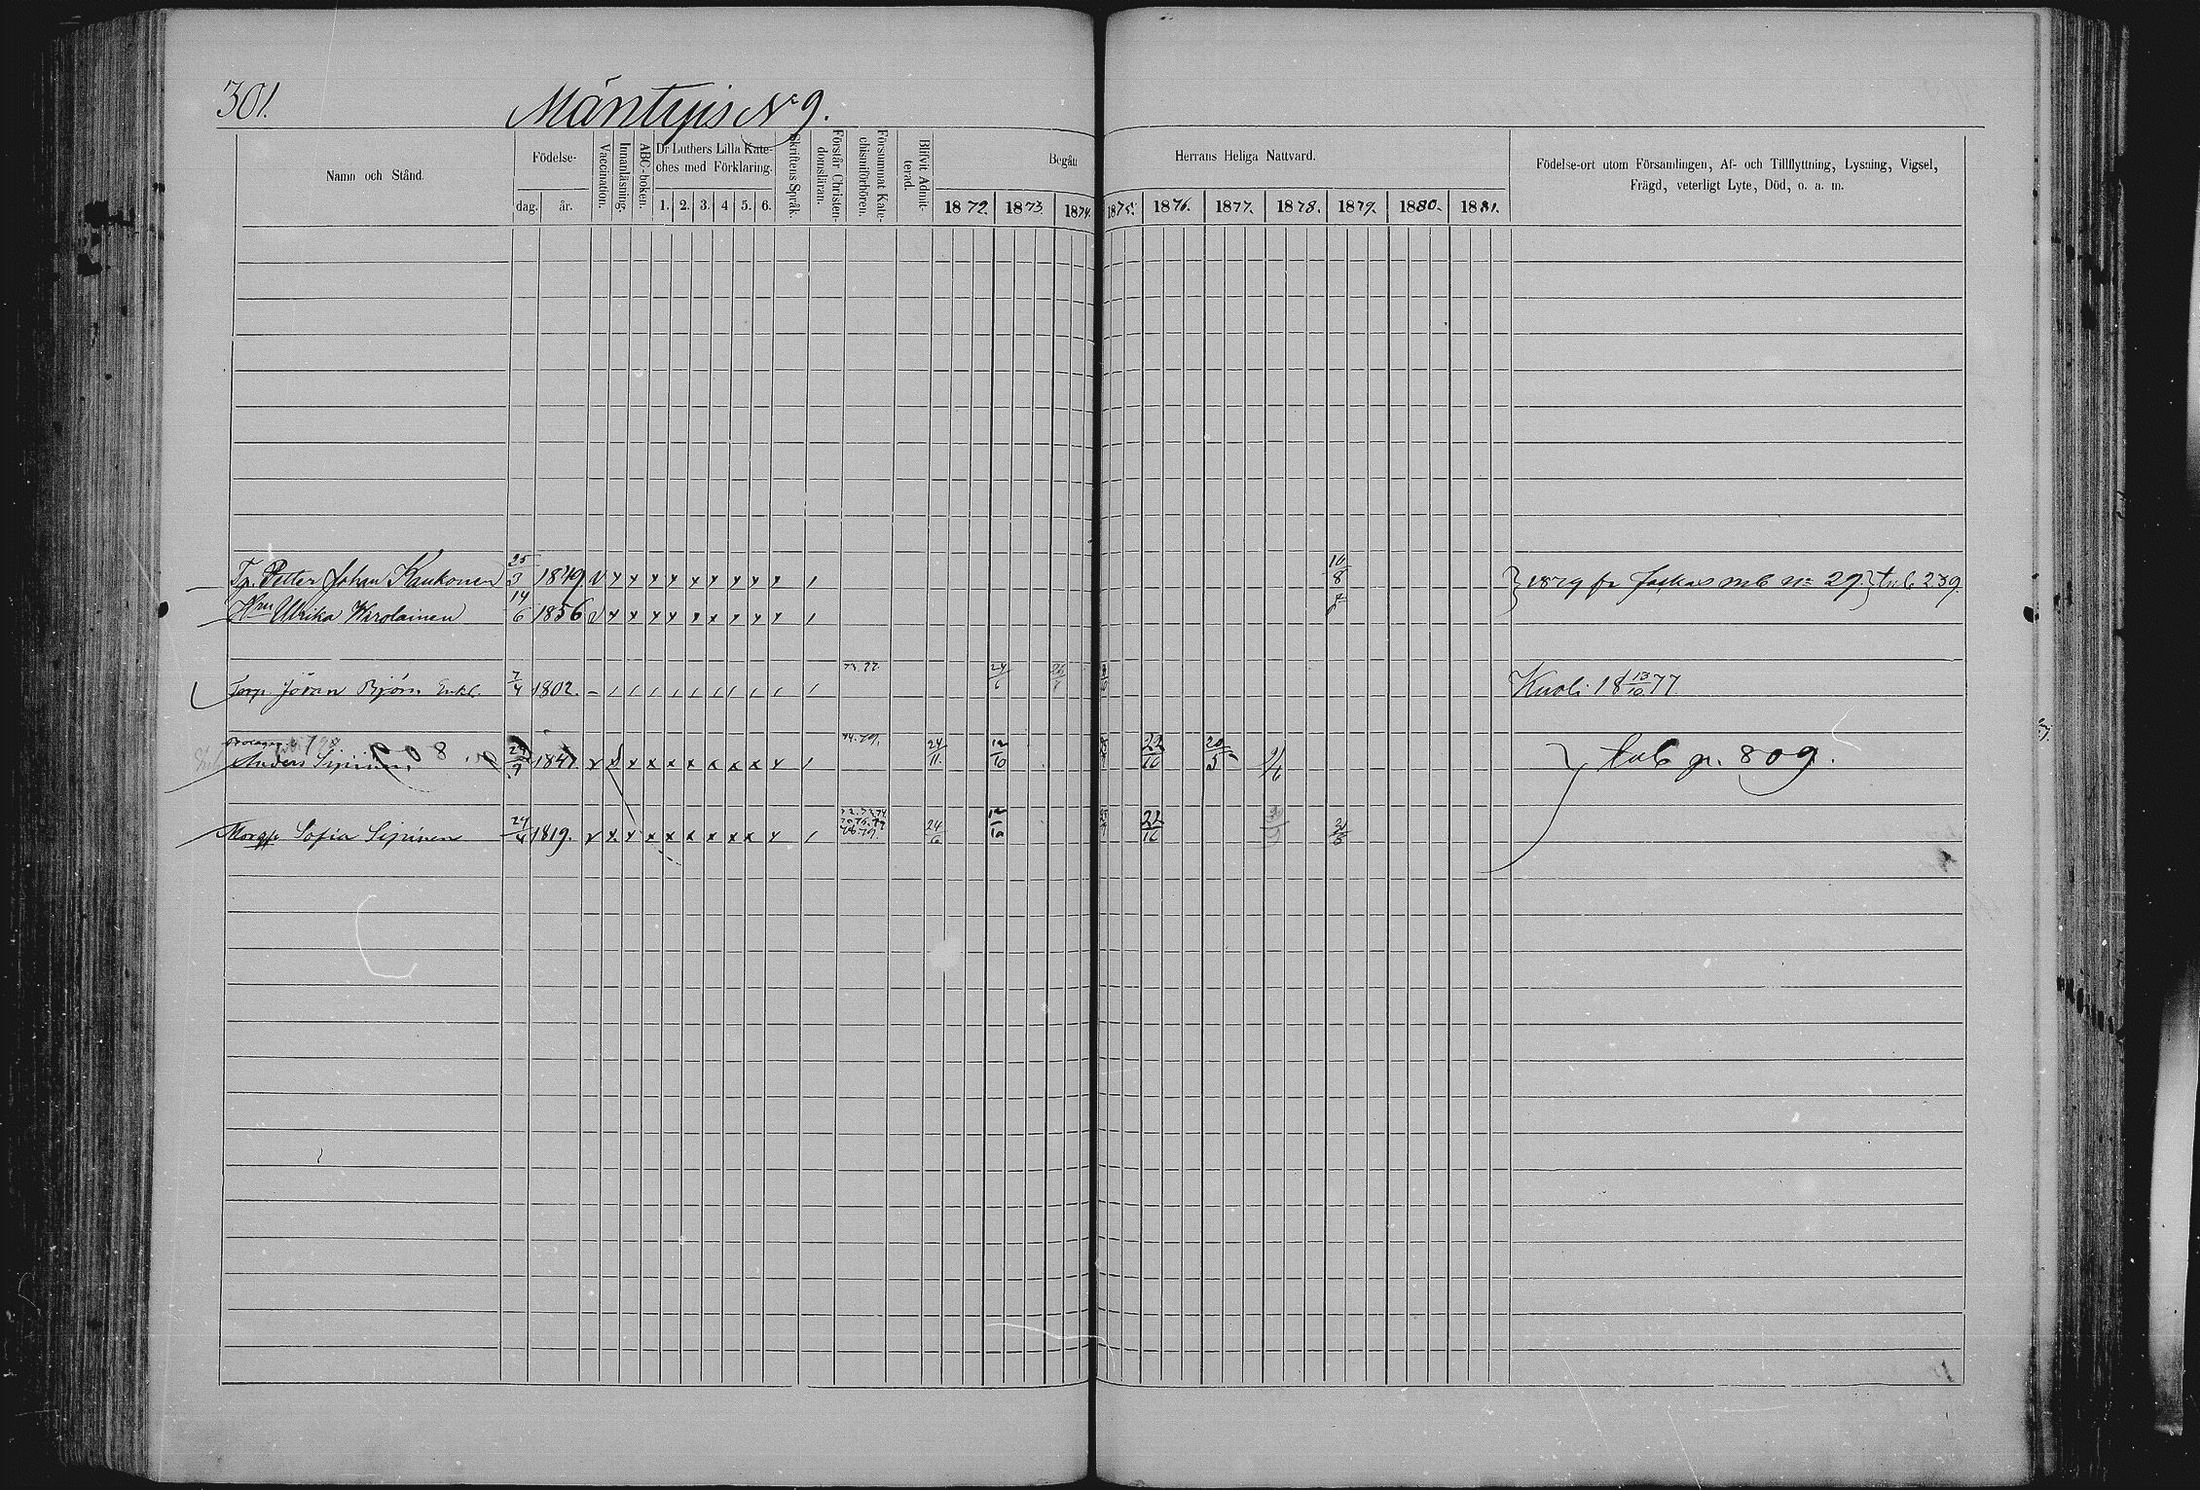 301.
Mäntyis No 9.
Namn och Stånd.
Födelse-
dag. år.
Vaccination.
Innanläsning.
ABC-boken.
Dr Luthers Lilla Kate-
ches med Förklaring.
1. 2. 3. 4 5. 6.
Skriftens Språk.
Förstår Christen-
domsläran.
Försummat Kate-
chismiförhören.
Blifvit Admit-
terad.
Begått Herrans Heliga Nattvard.
1872. 1873. 1874. 1875. 1876. 1877. 1878. 1879. 1880. 1881.
Födelse-ort utom Församlingen, Af- och Tillflyttning, Lysning, Vigsel,
Frägd, veterligt Lyte, Död, o. a. m.
Petter Johan Kaukonen 25/3 1849. v x x x x x x x x x / 10/8 1879 fr mb no 29. 239.
Hru Ulrika Wirolainen 14/6 1856 v x x x x x x x x x /
Torp. Jöran Björn Enkl. 7/4 1802. – / / / / / / / / / / 73.77. 24/6 Kuoli 18 13/10 77
Anders Sipinen 808 x x x x x x x x x / 74.79. 24/11. 12/10 22/10 20/5 809.
Sofia Sipinen 24/4 1819. v x x x x x x x x x / 24/6 12/10 22/10